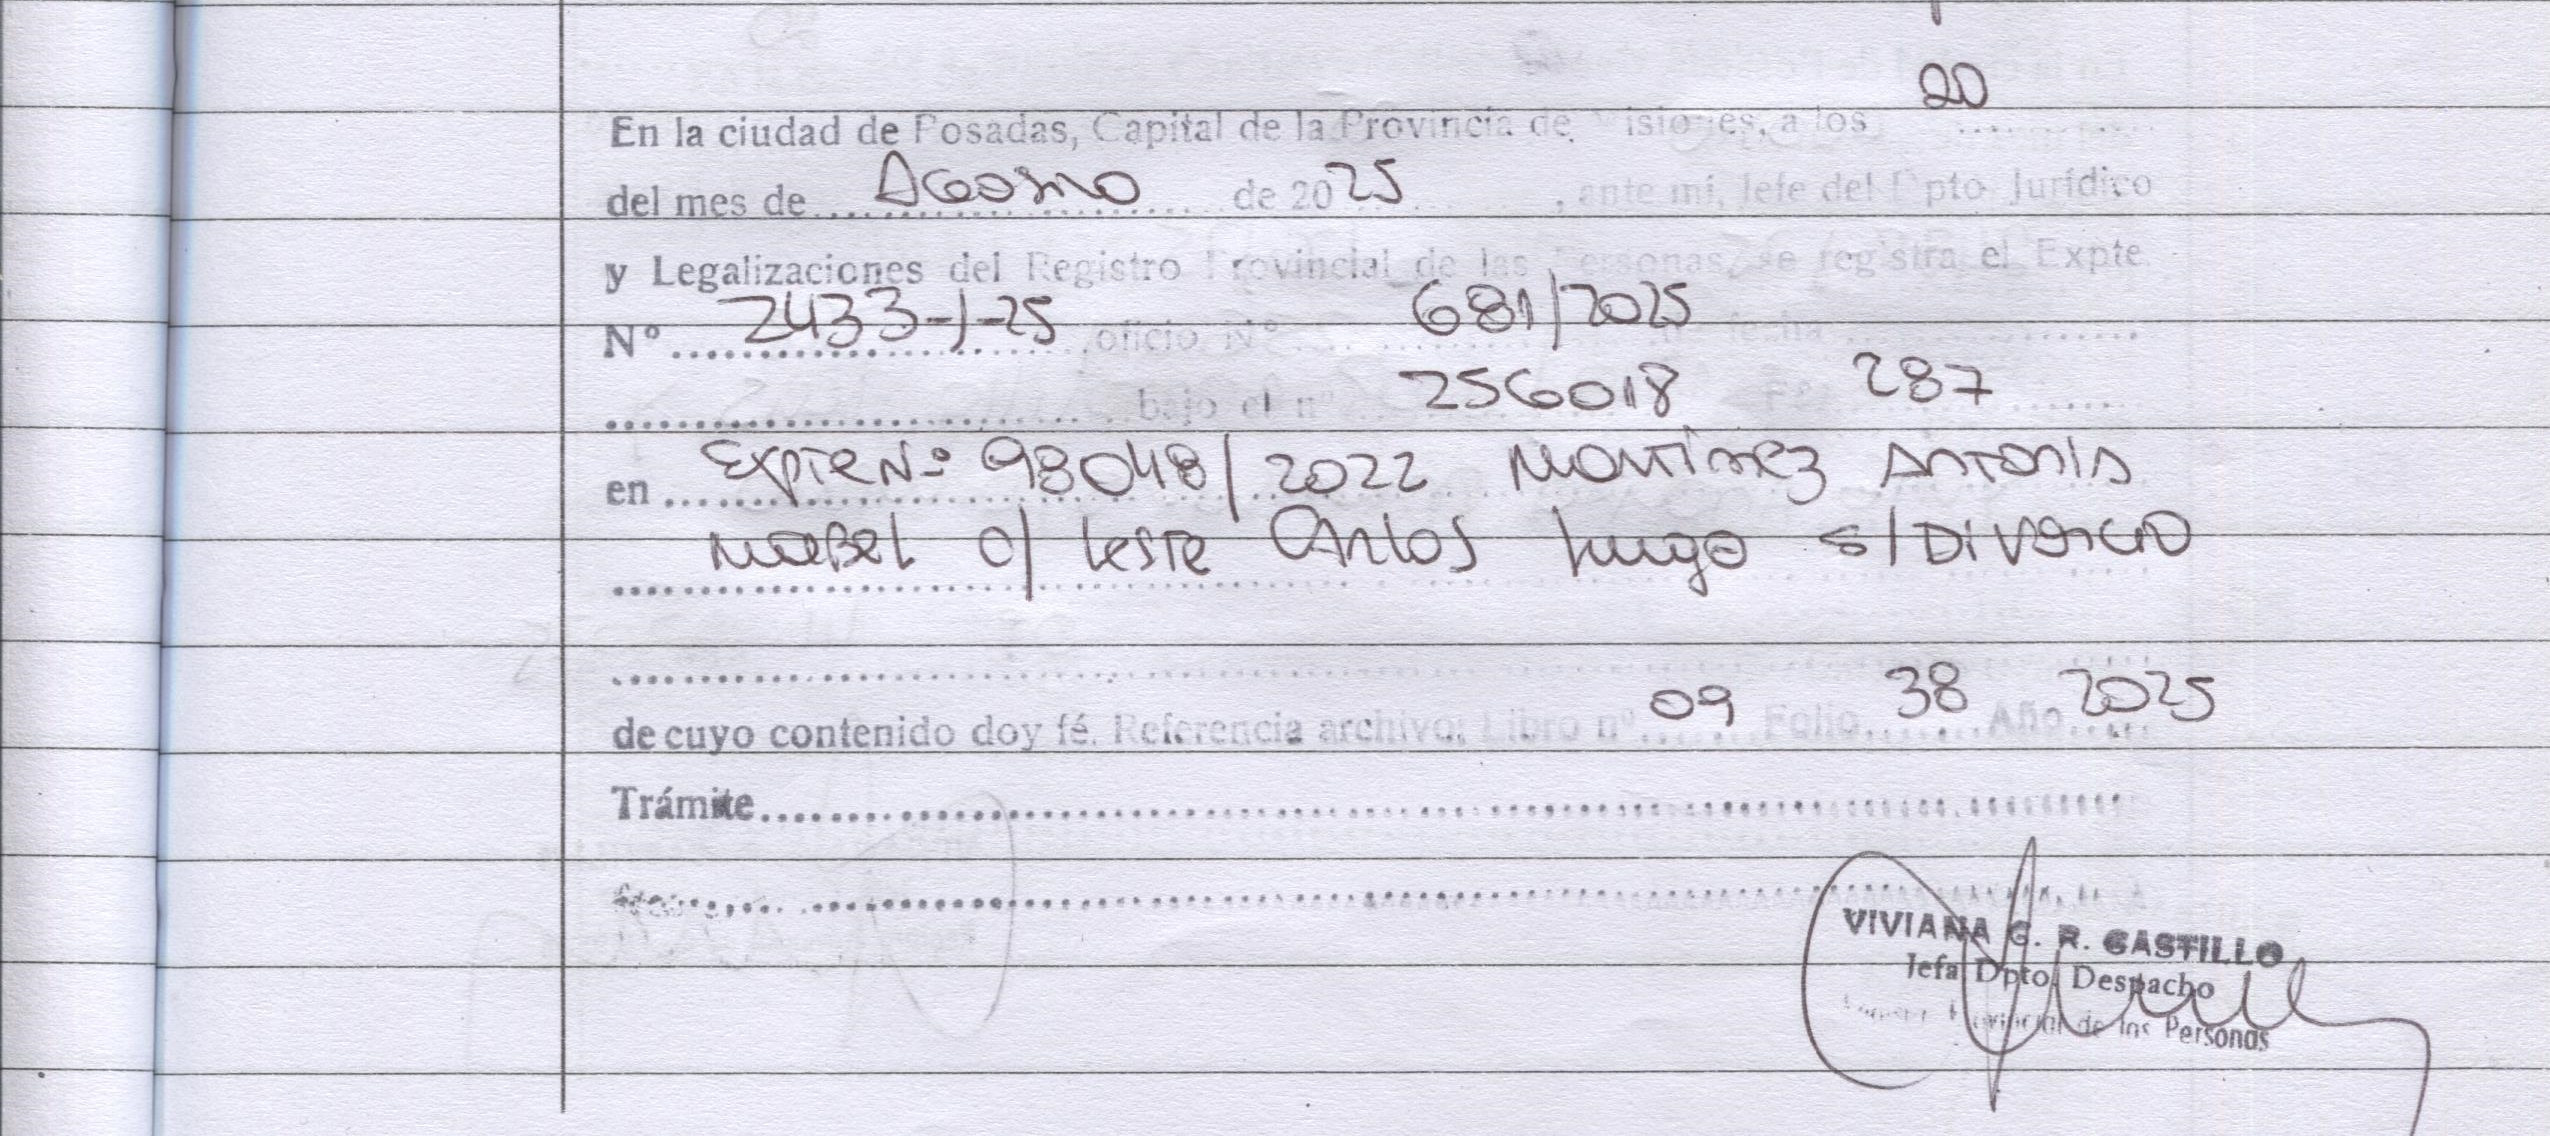 20
En la ciudad de Posadas, Capital de la Provincia de Misiones, a los ............
del mes de Agosto de 2025, ante mi, Jefe del Dpto Jurídico
y Legalizaciones del Registro Provincial de las Personas, se registra el Expte.
Nº 2433-J-25 oficio Nº 681/2025 fecha
bajo el nº 256018 Fº 287
en Expte Nº 98048/2022 Martinez Antonia
Mabel c/ Leste Carlos Hugo s/ Divorcio
de cuyo contenido doy fé. Referencia archivo: Libro nº 09 Folio 38 Año 2025
Trámite
VIVIANA G. R. CASTILLO
Jefa Dpto. Despacho
Provincial de las Personas